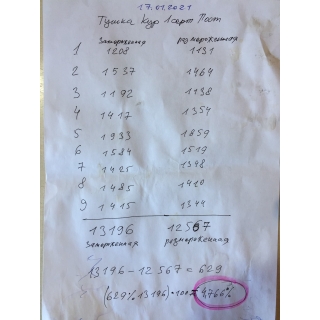 17.01.2021
Тушка Кур 1 сорт Пост
Замороженная размороженная
1 1208 1131
2 1537 1464
3 1192 1138
4 1417 1354
5 1933 1859
6 1584 1519
7 1425 1348
8 1485 1410
9 1415 1344
13196 12567
Замороженная размороженная
13196 - 12567 = 629
(629 % 13196) • 100 = 4,766%